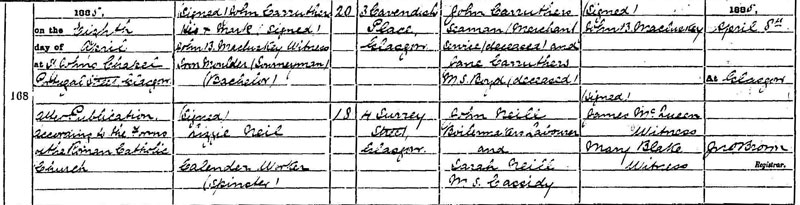 168
1885.
on the Eighth
day of April
at St Johns Chapel
Portugal Street Glasgow
After Publication
according to the Forms
of the Roman Catholic
Church
(Signed) John Carruthers
His x Mark (Signed)
John B. Macluskey Witness
Iron Moulder (Journeyman)
(Bachelor)
(Signed)
Lizzie Neil
Calender Worker
(Spinster)
20
18
3 Cavendish
Place
Glasgow
4 Surrey
Street
Glasgow
John Carruthers
Seaman (Merchant
Service) (deceased) and
Jane Carruthers
M.S. Boyd (deceased)
John Neill
Boilermakers Labourer
and
Sarah Neill
M.S. Cassidy
(Signed)
John B. Macluskey
(Signed)
James McQueen
Witness
Mary Blake
Witness
1885.
April 8th
At Glasgow
Jno Brown
Registrar.